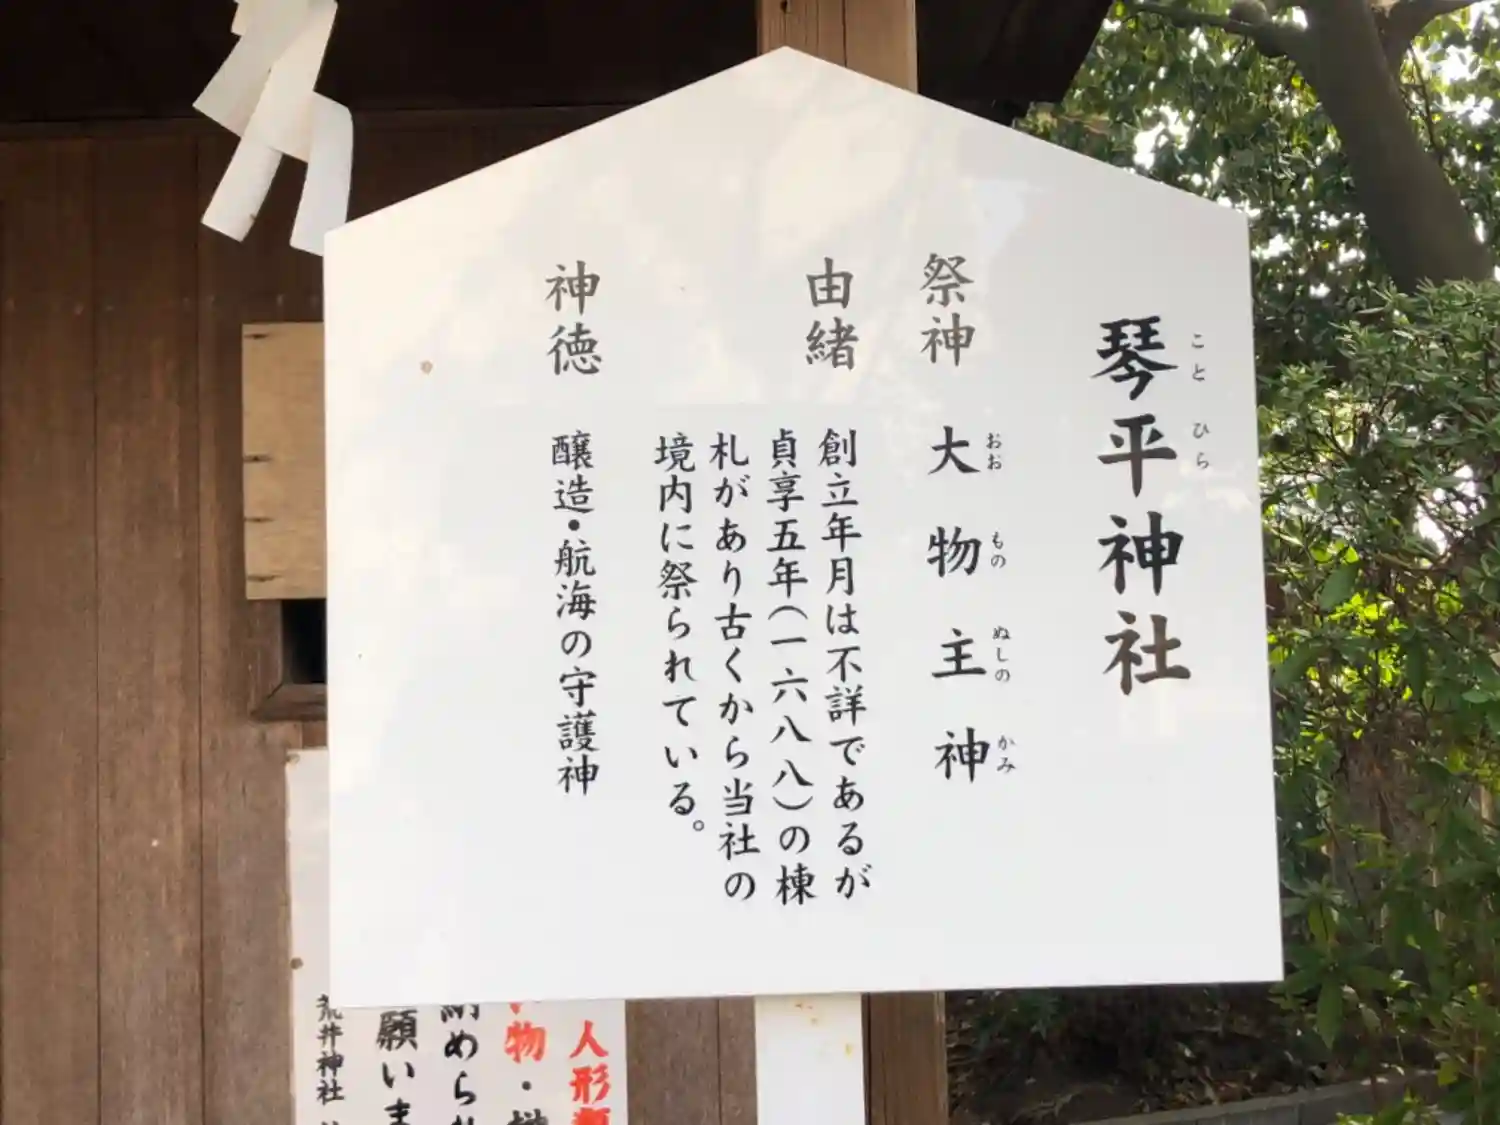 琴平神社
ことひら
祭神 大物主神
おおものぬしのかみ
由緒 創立年月は不詳であるが
貞享五年(一六八八)の棟
札があり古くから当社の
境内に祭られている。
神徳 醸造・航海の守護神
人形
物・
納めら
願いま
荒井神社